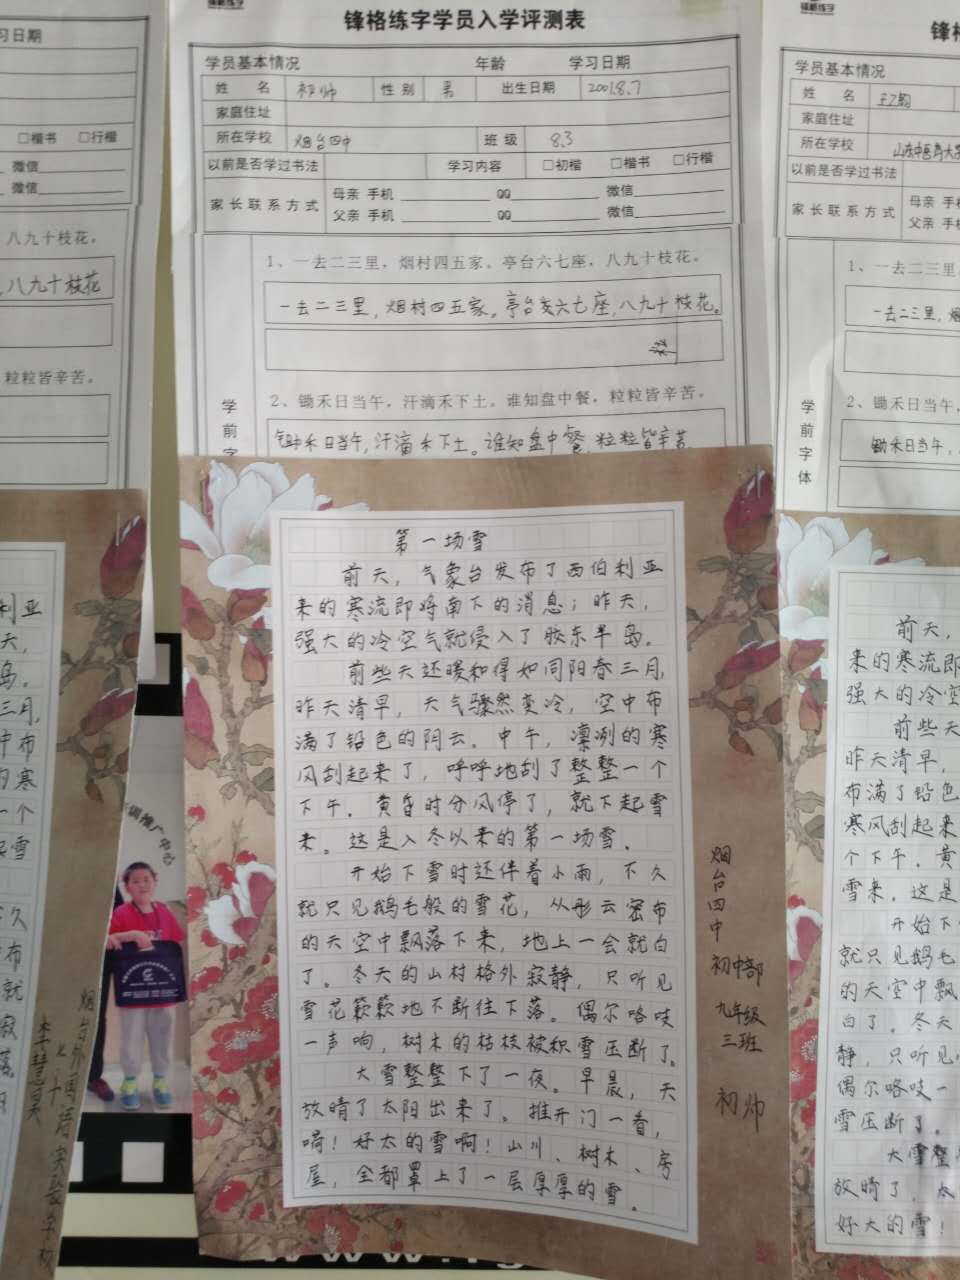 锋格练字
锋格练字学员入学评测表
学员基本情况 年龄 学习日期
姓 名 初帅 性 别 男 出生日期 2001.8.7
家庭住址
所在学校 烟台四中 班 级 8.3
以前是否学过书法 学习内容 □初楷 □楷书 □行楷
家 长 联 系 方 式
母亲 手机 QQ 微信
父亲 手机 QQ 微信
1、一去二三里，烟村四五家。亭台六七座，八九十枝花。
一去二三里，烟村四五家。亭台六七座，八九十枝花。
2、锄禾日当午，汗滴禾下土。谁知盘中餐，粒粒皆辛苦。
锄禾日当午，汗滴禾下土。谁知盘中餐，粒粒皆辛苦
学
前
字
第一场雪
前天，气象台发布了西伯利亚
来的寒流即将南下的消息；昨天，
强大的冷空气就侵入了胶东半岛。
前些天还暖和得如同阳春三月，
昨天清早，天气骤然变冷，空中布
满了铅色的阴云。中午，凛冽的寒
风刮起来了，呼呼地刮了整整一个
下午。黄昏时分风停了，就下起雪
来。这是入冬以来的第一场雪。
开始下雪时还伴着小雨，不久
就只见鹅毛般的雪花，从彤云密布
的天空中飘落下来，地上一会就白
了。冬天的山村格外寂静，只听见
雪花簌簌地不断往下落。偶尔咯吱
一声响，树木的枯枝被积雪压断了。
大雪整整下了一夜。早晨，天
放晴了太阳出来了。推开门一看，
嗬！好大的雪啊！山川、树木、房
屋，全都罩上了一层厚厚的雪。
烟台四中
初中部
九年级
三班
初帅
习日期
□楷书 □行楷
微信
微信
八九十枝花。
八九十枝花
粒粒皆辛苦。
利亚
天，
岛。
三月，
中布
的寒
一个
起雪
久
布
就
寂
落。
推广中心
烟台外国语实验学校
七.十
李慧昊
学员基本情况
姓 名
家庭住址
所在学校
以前是否学过书法
家 长 联 系 方 式
母亲 手机
父亲 手机
1、一去二三里
一去二三里，烟
2、锄禾日当午，
锄禾日当午，
学
前
字
体
前天，
来的寒流即
强大的冷空
前些天
昨天清早，
布满了铅色
寒风刮起来
个下午。黄
雪来。这是
开始下
就只见鹅毛
的天空中飘
白了。冬天
静，只听见
偶尔咯吱一
雪压断了。
大雪整
放晴了，太
好大的雪！